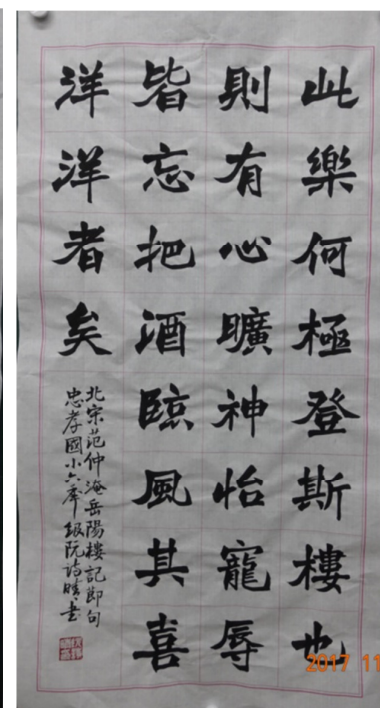 此樂何極登斯樓也
則有心曠神怡寵辱
皆忘把酒臨風其喜
洋洋者矣
北宋范仲淹岳陽樓記節句
忠孝國小六年級阮詩晴書
2017 11